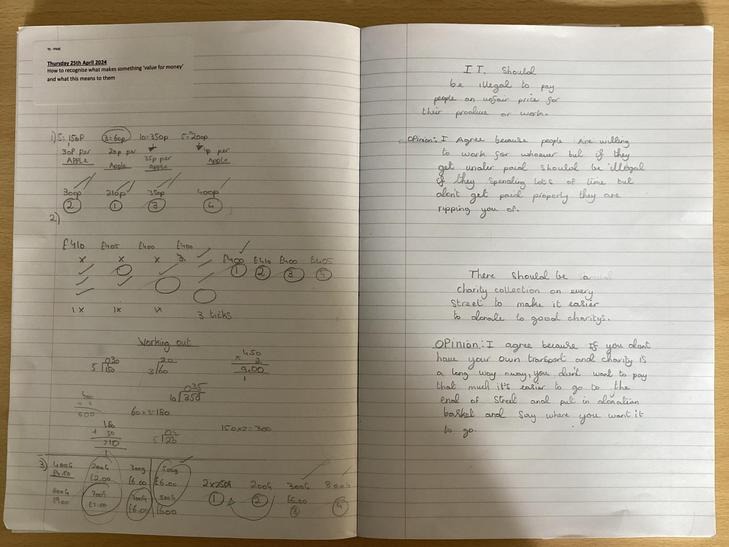 Thursday 25th April 2024
How to recognise what makes something 'value for money'
and what this means to them
1) 5= 150P 3=60p 10=350p 5=200p
30P per 20p per 35p per p per
APPLE Apple Apple Apple
300p 210p 350p 400p
2 1 3 4
2)
£410 £405 £400 £400
x x x
£400 £410 £400 £405
1 2 3
1x 1x 3 ticks
Working out
030 20 450
5 150 3 60 x 2
9.00
035
10 350
600 60x3=180 150x2=300
180
+ 30
210
3) 400G 200G 300g 500g
£4.50 £2.00 £6.00 £6.00 2x250g 200G 300G 800G
800G 700G 1 2 £6.00 4
£7.00 £6.00 3
I T. Should
be illegal to pay
people an unfair price for
their produce or work.
Opinion: I Agree because people Are willing
to work for whoever but if they
get under paid should be illegal
if they spending lots of time but
don't get paid properly they are
ripping you of.
There Should be a
charity collection on every
Street to make it easier
to donate to good charity's.
OPinion: I agree because if you dont
have your own transport and charity is
a long way away, you don't want to pay
that much it's easier to go to the
end of Street and put in donation
basket and say where you want it
to go.